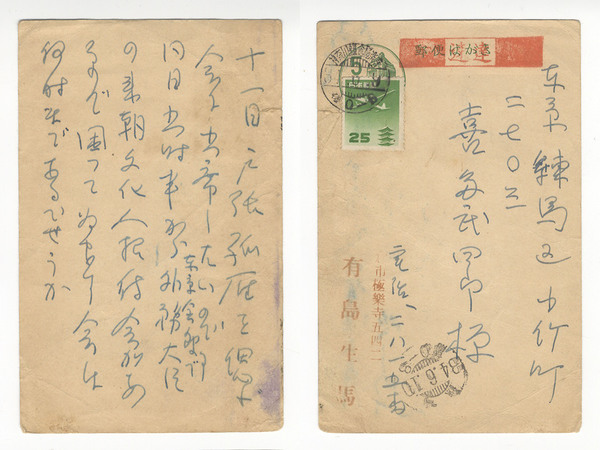 十一日戸張孤雁を偲ぶ
会に出席したいので
同日五時半から外務大臣
東京会館
の来朝文化人招待会がある
ので困つて
会は
何時まであるでせうか
郵便はがき
速達
25
東京練馬区小竹町
二七〇三
喜多武四郎様
市極楽寺五四二
有島生馬
34.6.10